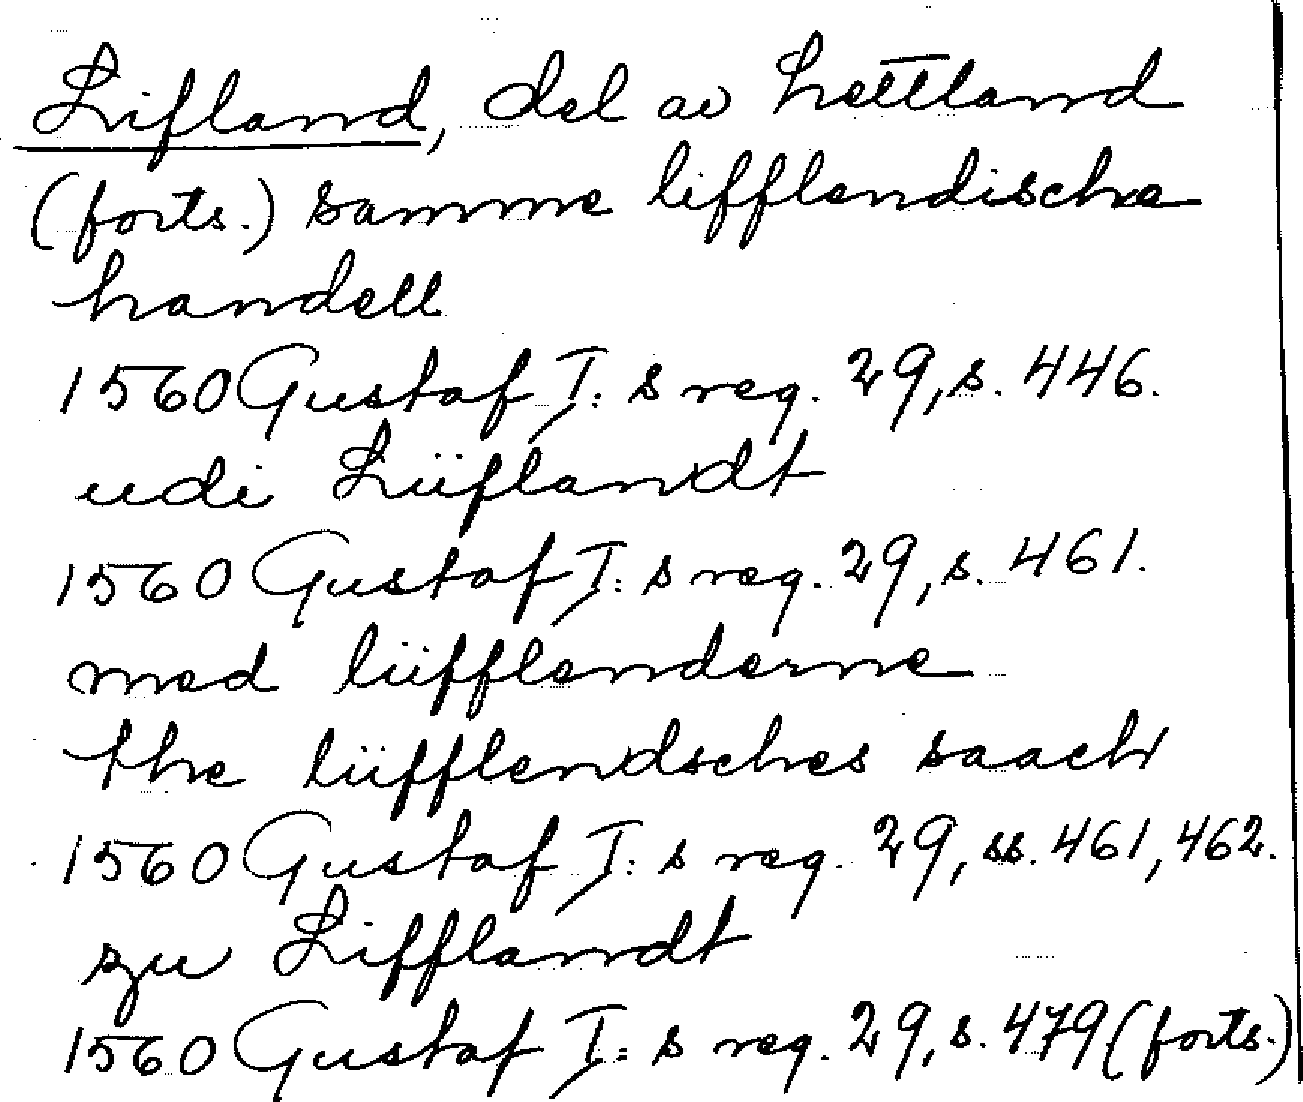 Lifland, del av Lettland
(forts.) samme lifflendische
handell
1560 Gustaf I:s reg. 29, s. 446.
udi Lüflandt
1560 Gustaf I:s reg. 29, s. 461.
med lüfflenderne
the lüfflendsches saach
1560 Gustaf I:s reg. 29, ss. 461, 462.
zu Lifflandt
1560 Gustaf I:s reg. 29, s. 479 (forts.)